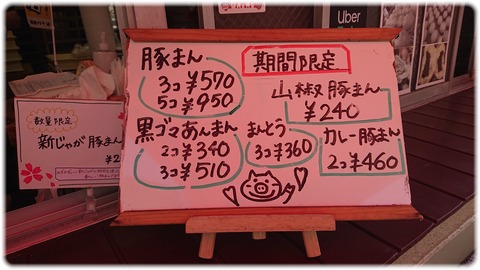 豚まん
3コ ¥570
5コ ¥950
期間限定
山椒豚まん
¥240
黒ゴマあんまん
2コ ¥340
3コ ¥510
まんとう
3コ ¥360
カレー豚まん
2コ ¥460
数量限定
新じゃが豚まん
Uber